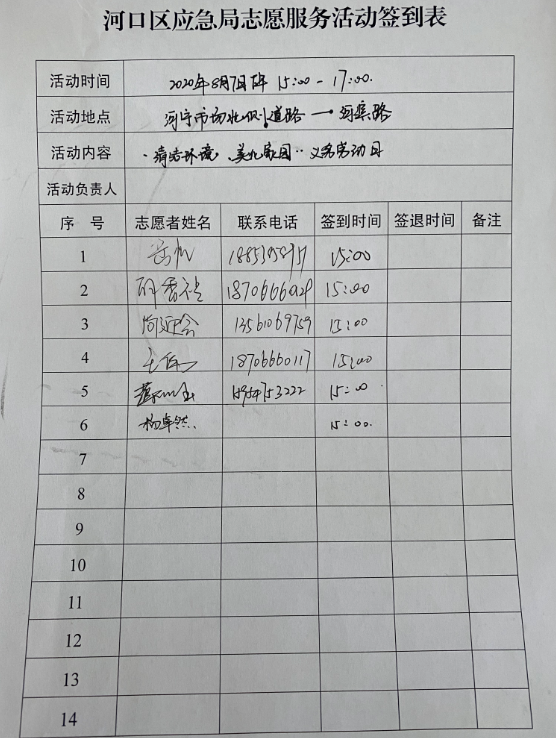 河口区应急局志愿服务活动签到表
活动时间 2020年8月7日下午 15:00-17:00.
活动地点 河宁市场北侧道路 — 河集路
活动内容 ·清洁环境、美化家园··义务劳动日
活动负责人
序 号 志愿者姓名 联系电话 签到时间 签退时间 备注
1 15:00
2 15:00
3 13561069759 15:00
4 18706660117 15:00
5 15954753222 15:00
6 杨卓然 15:00.
7
8
9
10
11
12
13
14